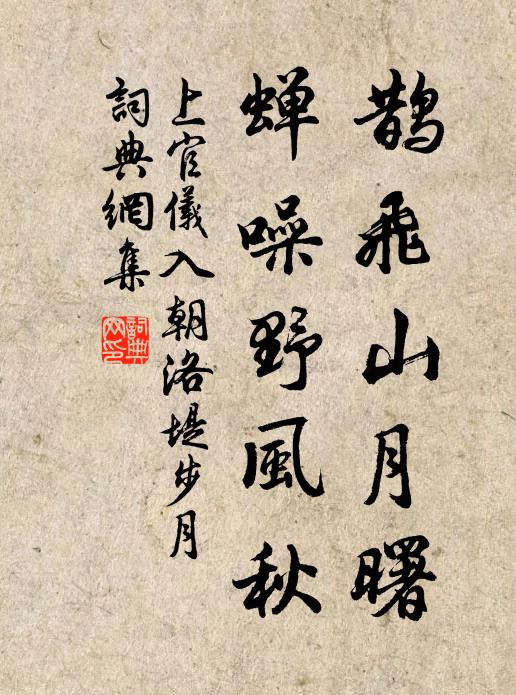 鵲飛山月曙
蟬噪野風秋
上官儀入朝洛堤步月
詞典網集
詞典網印